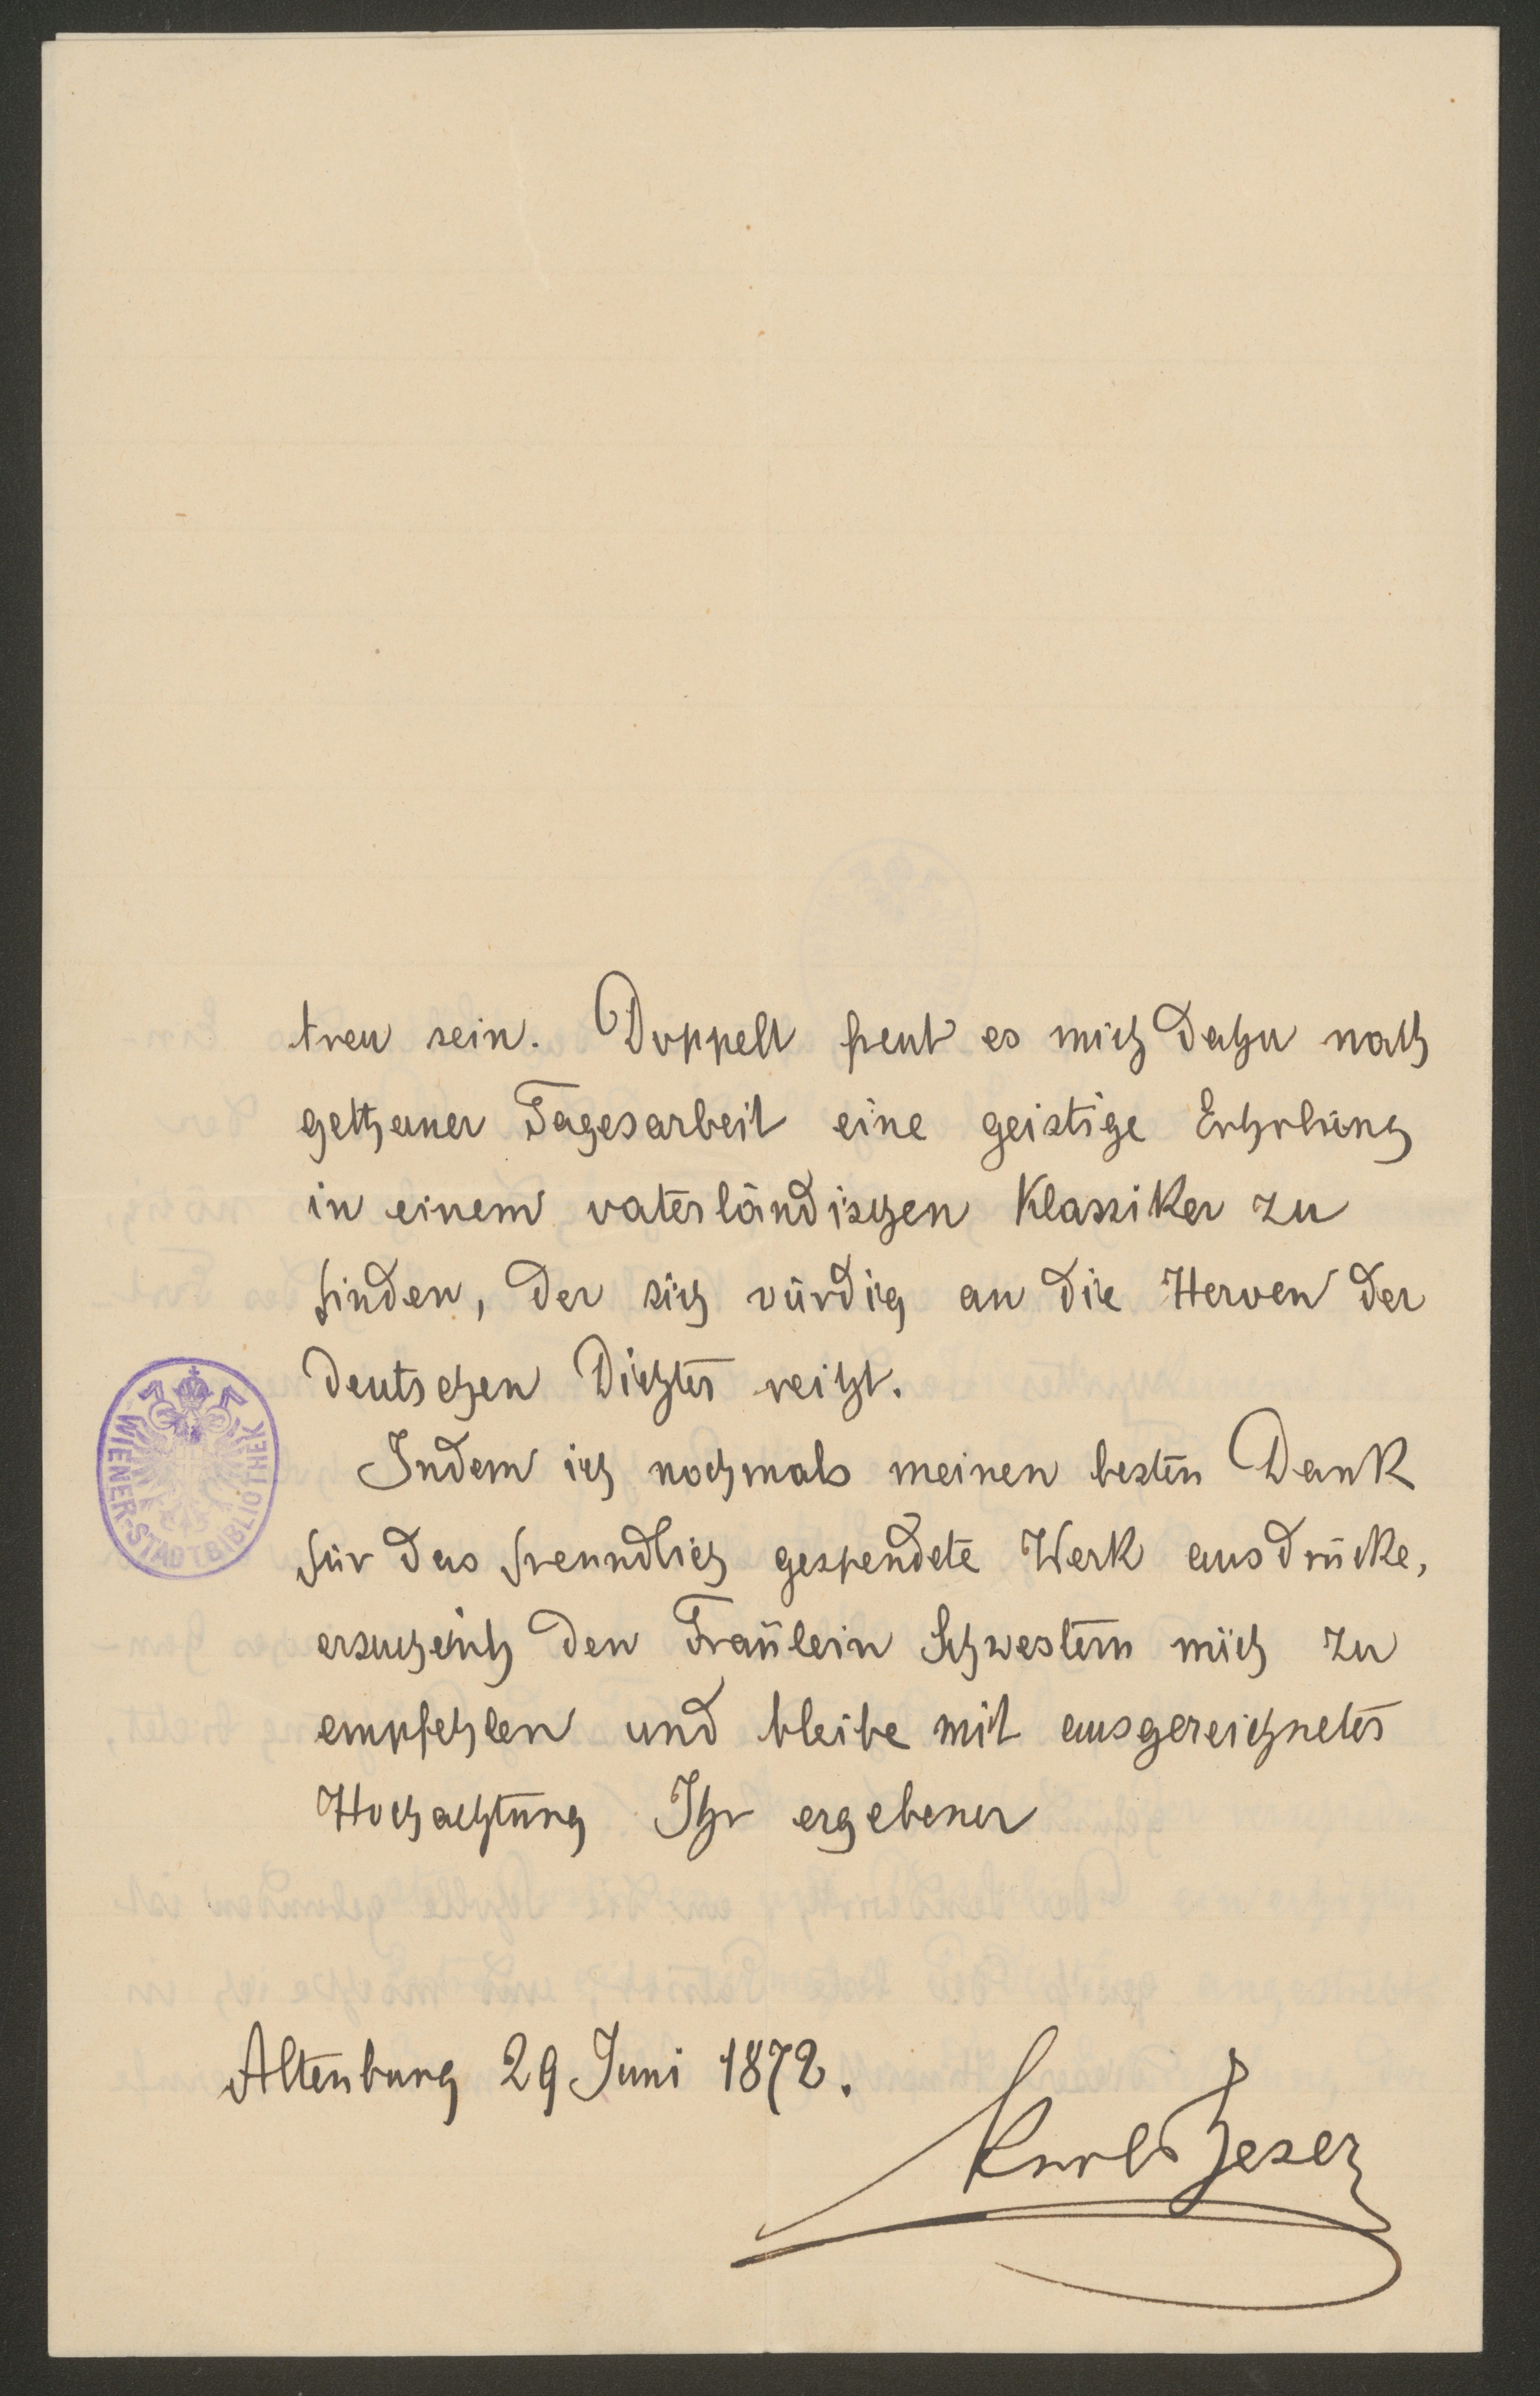 treu sein. Doppelt freut es mich daher nach
gethaner Tagesarbeit eine geistige Erholung
in einem vaterländischen Klassiker zu
finden, der sich würdig an die Heroen der
deutschen Dichter reiht.
Indem ich nochmals meinen besten Dank
für das freundlich gespendete Werk ausdrücke,
ersuche ich den Fräulein Schwestern mich zu
empfehlen und bleibe mit ausgezeichneter
Hochachtung Ihr ergebener
WIENER-STADTBIBLIOTHEK
Altenburg 29 Juni 1872.
Karl